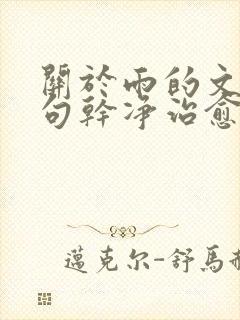 關於雨的文
句幹淨治愈
邁克尔-舒馬赫